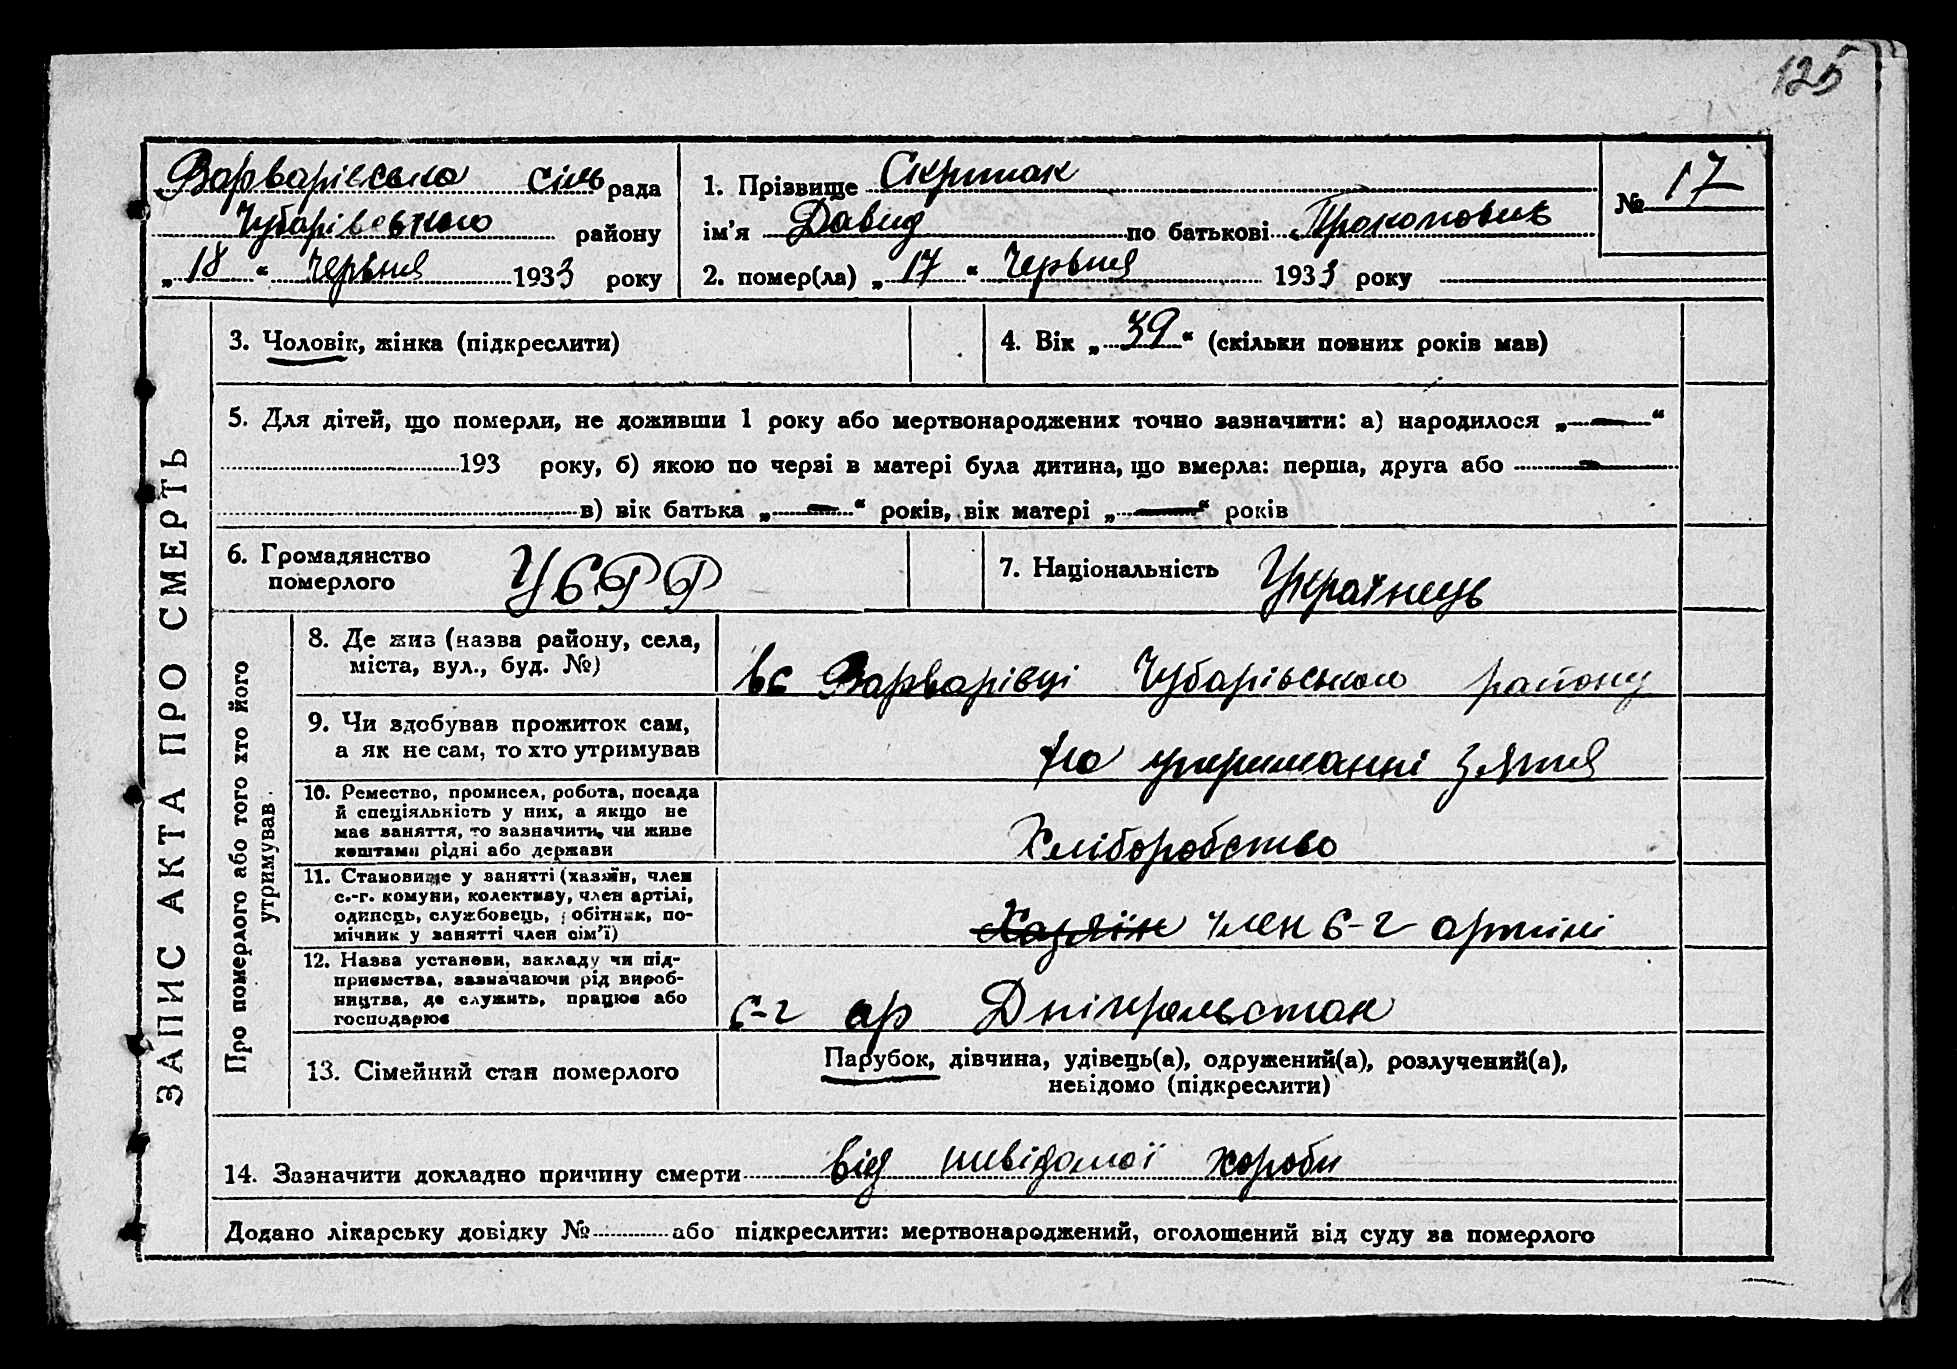 125
Варварівська сіль рада
Чубарівського району
„18“ червня 1933 року
1. Прізвище Скрипак
ім'я Давид по батькові Прокопович
2. помер(ла) „17“ Червня 1933 року
№ 17
ЗАПИС АКТА ПРО СМЕРТЬ
3. Чоловік, жінка (підкреслити)
4. Вік „39“ (скільки повних років мав)
5. Для дітей, що померли, не доживши 1 року або мертвонароджених точно зазначити: а) народилося „—“
193 року, б) якою по черзі в матері була дитина, що вмерла: перша, друга або —
в) вік батька „—“ років, вік матері „—“ років
6. Громадянство
померлого
УСРР
7. Національність Українець
Про померлого або того хто його
утримував
8. Де жив (назва району, села,
міста, вул., буд. №)
в с Варварівці Чубарівського району
9. Чи здобував прожиток сам,
а як не сам, то хто утримував
на утриманні зятя
10. Ремество, промисел, робота, посада
й спеціяльність у них, а якщо не
має заняття, то зазначити, чи живе
коштами рідні або держави
Хліборобство
11. Становище у занятті (хазяїн, член
с.-г. комуни, колективу, член артілі,
одинець, службовець, робітник, по-
мічник у занятті член сім'ї)
Хазяїн член с-г артілі
12. Назва установи, закладу чи під-
приємства, зазначаючи рід вироб-
ництва, де служить, працює або
господарює
с-г ар Дніпрельстан
13. Сімейний стан померлого
Парубок, дівчина, удівець(а), одружений(а), розлучений(а),
невідомо (підкреслити)
14. Зазначити докладно причину смерти від невідомої хороби
Додано лікарську довідку № або підкреслити: мертвонароджений, оголошений від суду за померлого